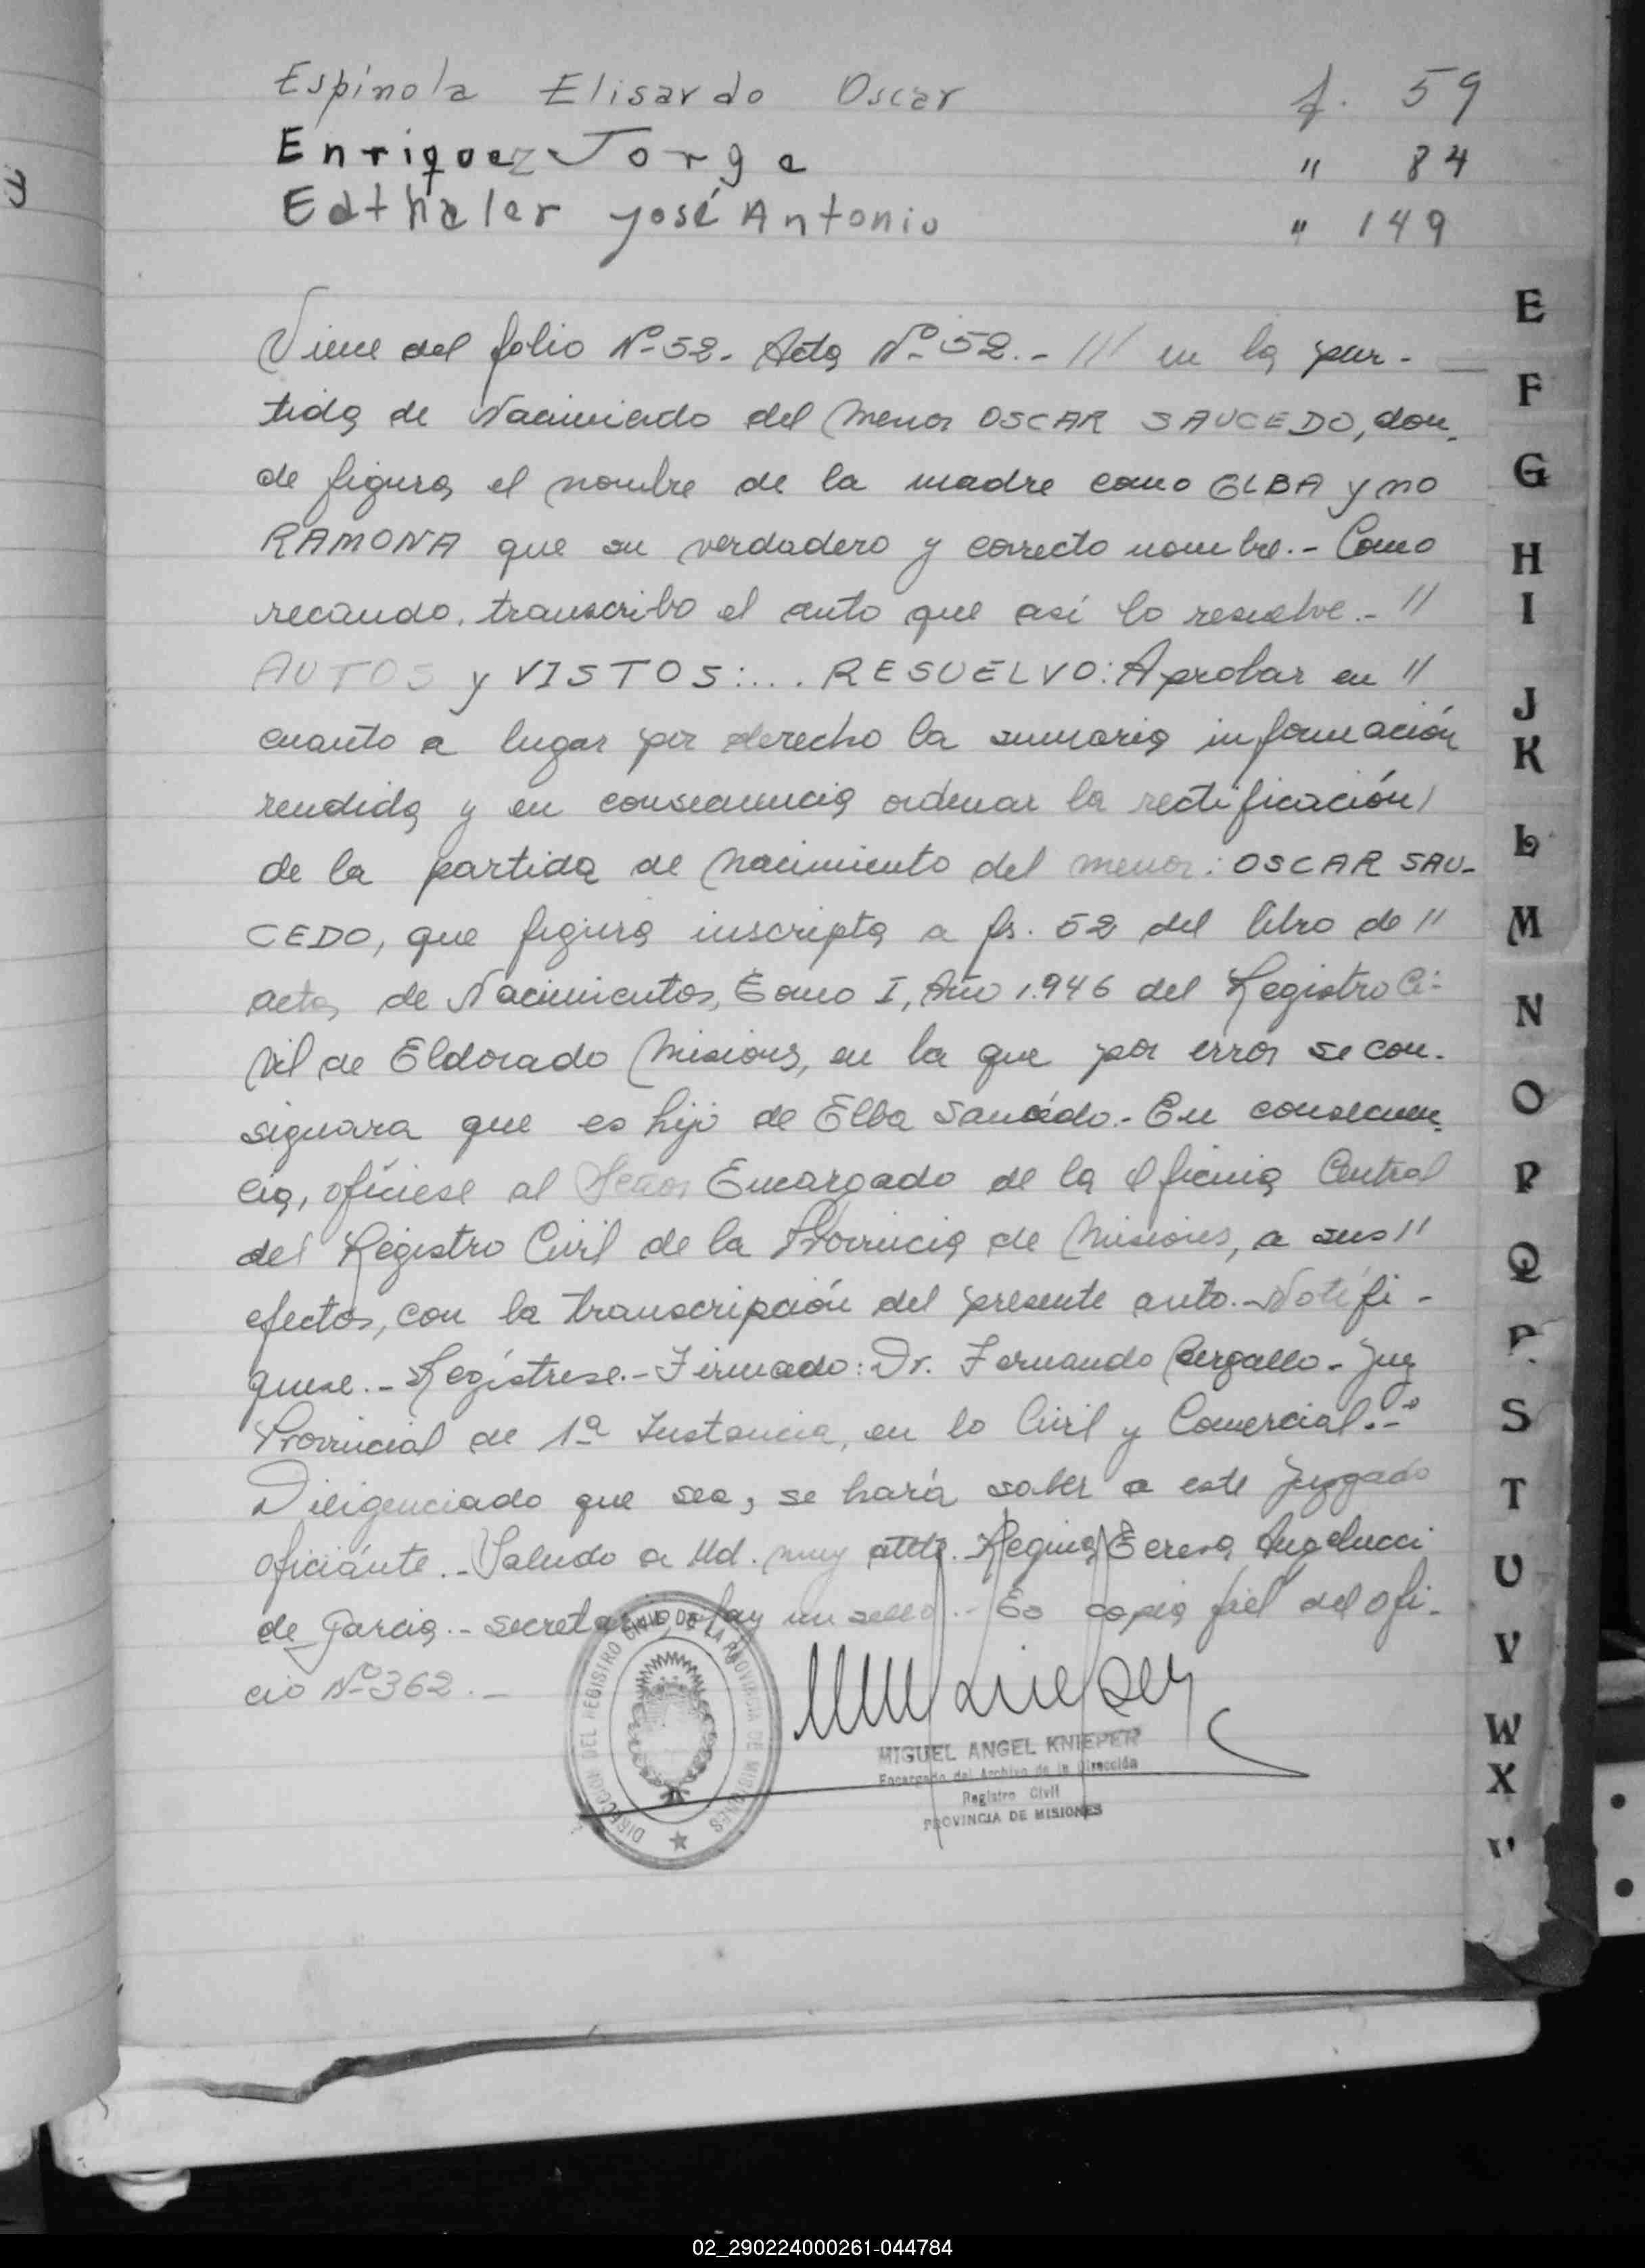 Espínola Elisardo Oscar f. 59
Enriquez Jorge " 84
Edthaler José Antonio " 149
Viene del folio Nº 52. Acta Nº 52.- /// en la par-
tida de Nacimiento del menor OSCAR SAUCEDO, don-
de figura el nombre de la madre como ELBA y no
RAMONA que su verdadero y correcto nombre.- Como
recaudo, transcribo el auto que así lo resuelve.- //
AUTOS y VISTOS:... RESUELVO: Aprobar en //
cuanto a lugar por derecho la sumaria información
rendida y en consecuencia ordenar la rectificación/
de la partida de nacimiento del menor: OSCAR SAU-
CEDO, que figura inscripta a fs. 52 del libro de //
actas de Nacimientos, Tomo I, Año 1.946 del Registro Ci-
vil de Eldorado Misiones, en la que por error se con-
signara que es hijo de Elba Saucedo.- En consecuen-
cia, ofíciese al Señor Encargado de la Oficina Central
del Registro Civil de la Provincia de Misiones, a sus //
efectos, con la transcripción del presente auto.- Notifí-
quese.- Regístrese.- Firmado: Dr. Fernando Bergallo - Juez
Provincial de 1ª Instancia, en lo Civil y Comercial.-
Diligenciado que sea, se hará saber a este Juzgado
oficiante.- Saludo a Ud. muy atte. Regina Teresa Angelucci
de Garcia.- secretaria, hay un sello.- Es copia fiel del ofi-
cio Nº 362.-
DIRECCION DEL REGISTRO CIVIL DE LA PROVINCIA DE MISIONES
MIGUEL ANGEL KNIEPER
Encargado del Archivo de la Dirección
Registro Civil
PROVINCIA DE MISIONES
E
F
G
H
I
J
K
L
M
N
O
P
Q
S
T
U
V
W
X
02_290224000261-044784